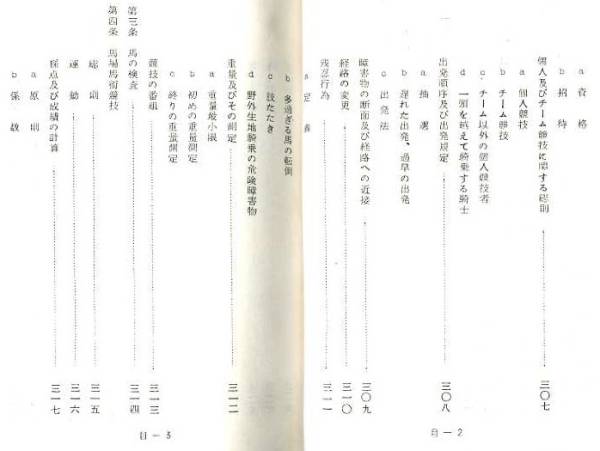 a 資格
b 招待
個人及びチーム競技に関する総則 三〇七
a 個人競技
b チーム競技
c チーム以外の個人競技者
d 一頭を越えて騎乗する騎士
出発順序及び出発規定 三〇八
a 抽選
b 遅れた出発、過早の出発
c 出発法
障害物の断面及び経路への近接 三〇九
経路の変更 三一〇
残忍行為 三一一
a 定義
b 多過ぎる馬の転倒
c 肢たたき
d 野外生地騎乗の危険障害物
重量及びその測定 三一二
a 重量最小限
b 初めの重量測定
c 終りの重量測定
競技の番組 三一三
第三条 馬の検査 三一四
第四条 馬場馬術競技
総則 三一五
運動 三一六
採点及び成績の計算 三一七
a 原則
b 係数
目-2
目-3